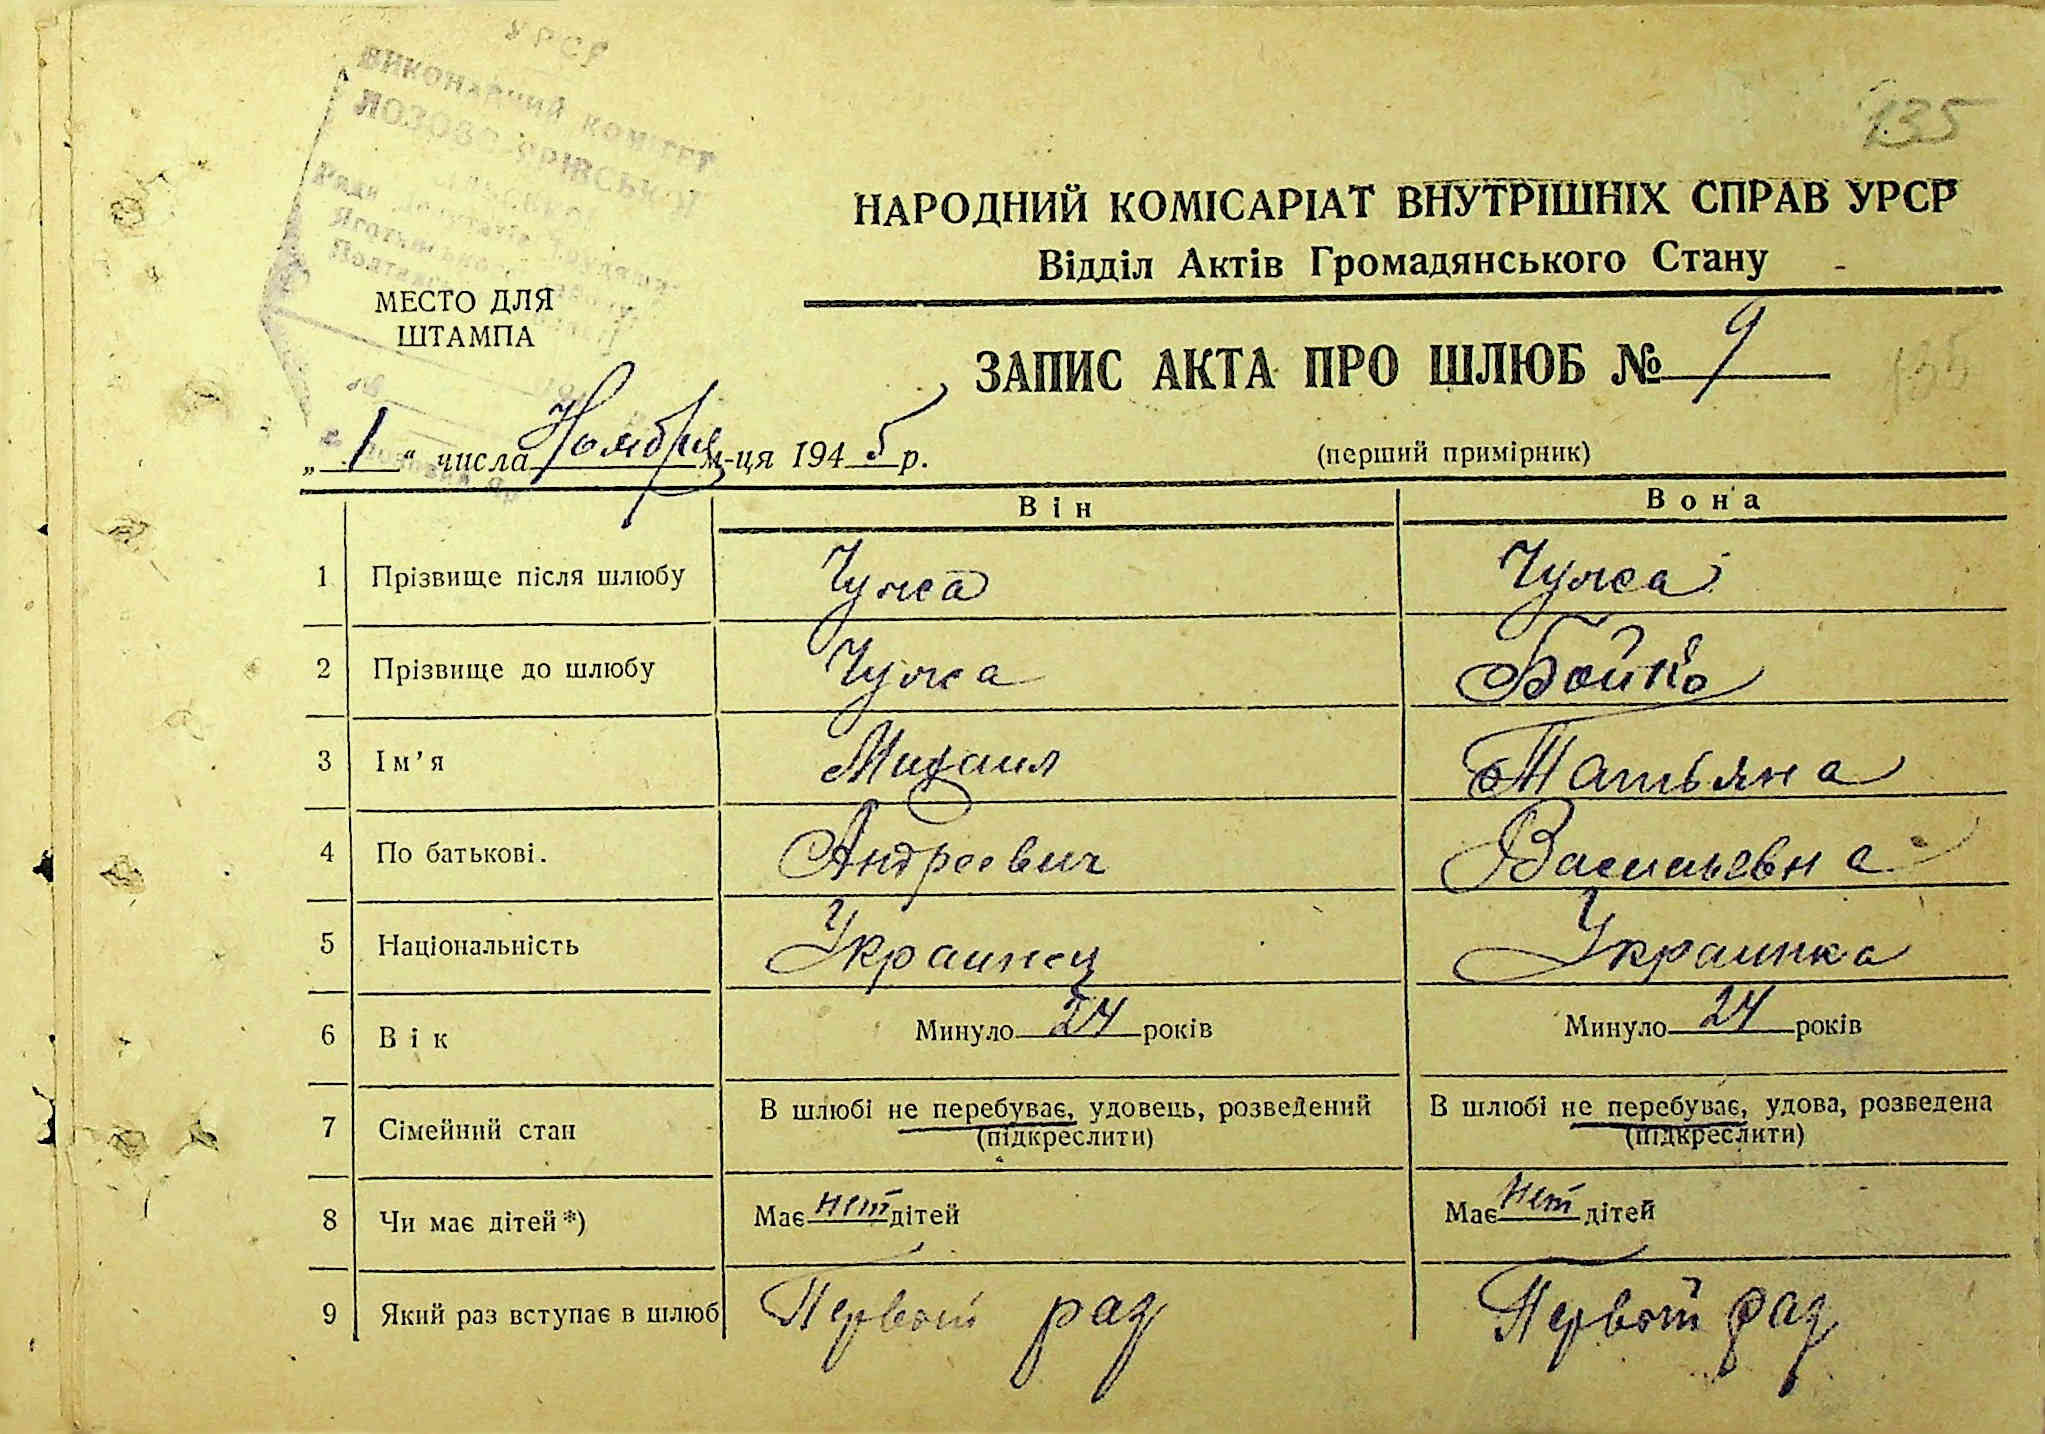 УРСР
ВИКОНАВЧИЙ КОМІТЕТ
135
НАРОДНИЙ КОМІСАРІАТ ВНУТРІШНІХ СПРАВ УРСР
Відділ Актів Громадянського Стану
МЕСТО ДЛЯ
ШТАМПА
ЗАПИС АКТА ПРО ШЛЮБ № 9
135
„ 1 “ числа Ноября м-ця 1945 р.
(перший примірник)
Він Вона
1 Прізвище після шлюбу Чужа Чужа
2 Прізвище до шлюбу Чужа Бойко
3 Ім’я Михаил Татьяна
4 По батькові. Андреевич Васильевна
5 Національність Украинец Украинка
6 Вік Минуло 24 років Минуло 24 років
7 Сімейний стан В шлюбі не перебуває, удовець, розведений (підкреслити) В шлюбі не перебуває, удова, розведена (підкреслити)
8 Чи має дітей*) Має нет дітей Має нет дітей
9 Який раз вступає в шлюб Первый раз Первый раз